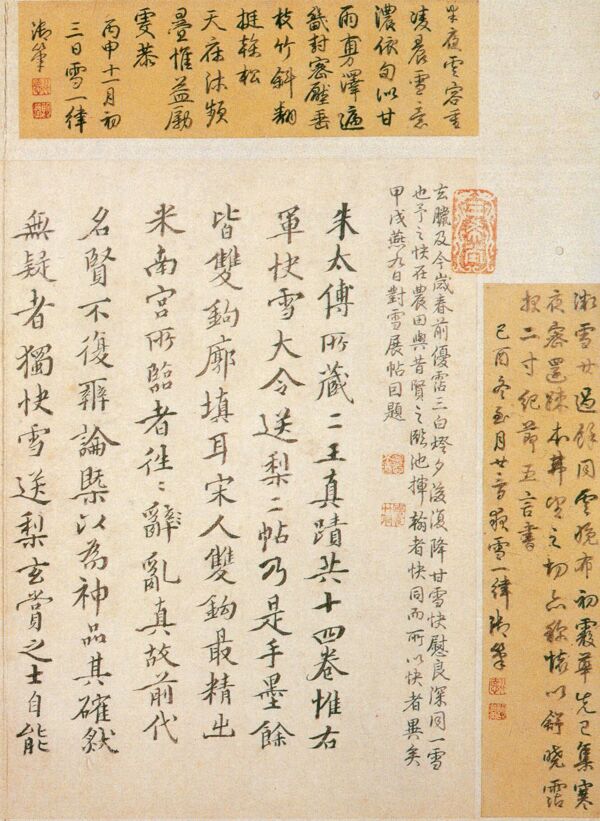 半夜雲容重
凌晨雪意
濃依旬似甘
雨澤遍
畿封密壓垂
枝竹斜翻
挺榦松
天庥沐頻
疊惟益勵
虔恭
丙申十一月初
三日雪一律
御筆
雪廿過同雲晚布初霰華先已集寒
夜寒還望之切懷以舒曉霑
二寸紀節五言書
己酉冬至月廿雪一律御筆
玄臘及今歲春前優霑三白燈夕後復降甘雪快慰良深同一雪
也予之快在農田與昔賢之臨池揮翰者快同而所以快者異矣
甲戌燕九日對雪展帖因題
朱太傅所藏二王真蹟共十四卷惟右
軍快雪大令送梨二帖乃是手墨餘
皆雙鉤廓填耳宋人雙鉤最精出
米南宮所臨者往〻辭亂真故前代
名賢不復辨論槩以為神品其確然
無疑者獨快雪送梨玄賞之士自能